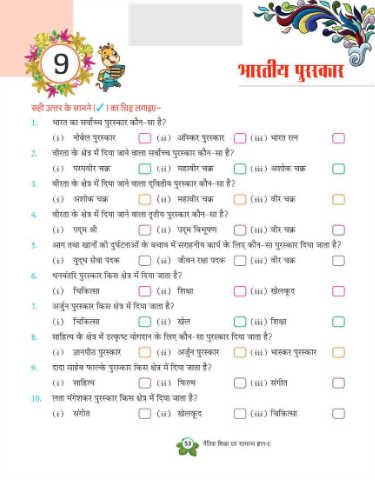 9
भारतीय पुरस्कार
सही उत्तर के सामने (✓) का चिह्न लगाइए-
1. भारत का सर्वोच्च पुरस्कार कौन-सा है?
(i) नोबेल पुरस्कार (ii) ऑस्कर पुरस्कार (iii) भारत रत्न
2. वीरता के क्षेत्र में दिया जाने वाला सर्वोच्च पुरस्कार कौन-सा है?
(i) परमवीर चक्र (ii) महावीर चक्र (iii) अशोक चक्र
3. वीरता के क्षेत्र में दिया जाने वाला द्वितीय पुरस्कार कौन-सा है?
(i) अशोक चक्र (ii) महावीर चक्र (iii) वीर चक्र
4. वीरता के क्षेत्र में दिया जाने वाला तृतीय पुरस्कार कौन-सा है?
(i) पद्म श्री (ii) पद्म विभूषण (iii) वीर चक्र
5. आग तथा खानों की दुर्घटनाओं के बचाव में सराहनीय कार्य के लिए कौन-सा पुरस्कार दिया जाता है?
(i) युद्ध सेवा पदक (ii) जीवन रक्षा पदक (iii) वीर चक्र
6. धनवंतरि पुरस्कार किस क्षेत्र में दिया जाता है?
(i) चिकित्सा (ii) शिक्षा (iii) खेलकूद
7. अर्जुन पुरस्कार किस क्षेत्र में दिया जाता है?
(i) चिकित्सा (ii) खेल (iii) शिक्षा
8. साहित्य के क्षेत्र में उत्कृष्ट योगदान के लिए कौन-सा पुरस्कार दिया जाता है?
(i) ज्ञानपीठ पुरस्कार (ii) अर्जुन पुरस्कार (iii) भास्कर पुरस्कार
9. दादा साहेब फाल्के पुरस्कार किस क्षेत्र में दिया जाता है?
(i) साहित्य (ii) फिल्म (iii) संगीत
10. लता मंगेशकर पुरस्कार किस क्षेत्र में दिया जाता है?
(i) संगीत (ii) खेलकूद (iii) चिकित्सा
53 नैतिक शिक्षा एवं सामान्य ज्ञान-८